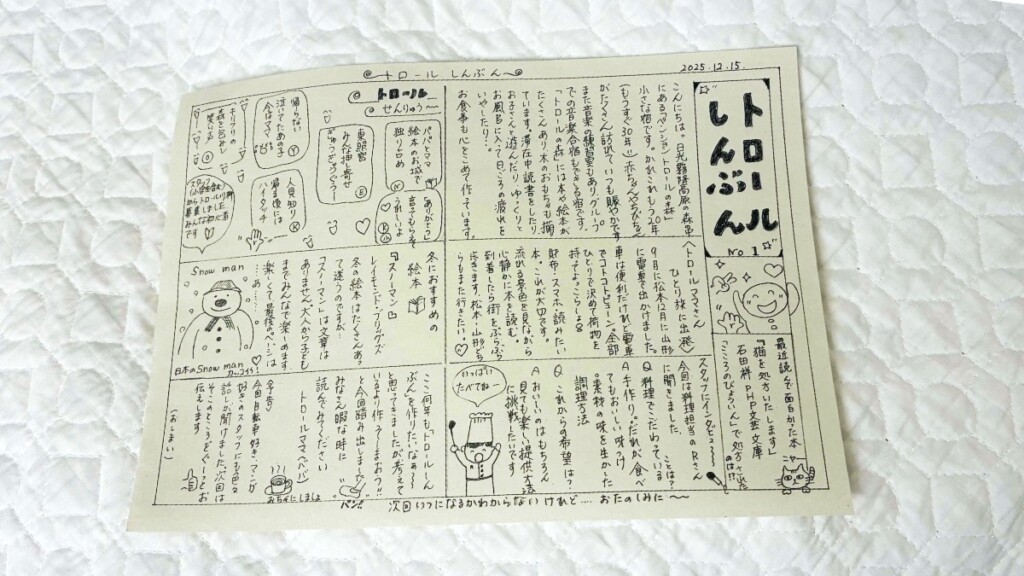 トロール しんぶん
2025.12.15.
トロール
しんぶん
No 1
こんにちは。日光霧降高原の森の中
にある「ペンション トロールの森」
小さな宿です。かれこれもう29年
(もうすぐ30年!!) 赤ちゃんやちびちゃん
がたくさん訪れて、いつも賑やかです
また音楽の練習室もあり、グループ
での音楽合宿もできる宿です。
「トロールの森」には本や絵本が
たくさんあり 木のおもちゃも揃っ
ています。滞在中 読書をしたり
お子さんと遊んだり、ゆっくりと
お風呂に入って日ごろの疲れを
いやしたり…
お食事も心をこめて作っています。
トロール
せんりゅう〜
「ありがとう」
言えてもらえて
うれしいよ
パパとママ
絵本のお城で
独り占め
東照宮
みんな押し寄せ
ぎゅうぎゅう〜
人見知り
帰る頃には
ハイタッチ
帰らない
泣いてたあの子
今はママ
キリフリの
森に包まれ
です
〈トロールママさん
ひとり旅に出発〉
9月に松本 12月に山形
に電車で出かけました。
車は便利だけれど電車
でコトコトビューン。全部
ひとりで決めて 荷物を
持ってよっこらしょ
財布、スマホ、読みたい
本。これが大切です。
流れる景色を見ながら
心静かに本を読む。
到着したら街をぶらぶら
歩きます。松本・山形どち
らもまた行きたい♡
冬におすすめの
絵本
『スノーマン』
レイモンド・ブリッグズ
冬の絵本はたくさんあっ
て迷うのですが…
「スノーマン」は文章は
ありません。大人から子ども
までみんなで楽しめます
楽しくて最後のページは
…あ……
Snow man
日本のSnow man
カーワイイ!
最近読んで面白かった本
『猫を処方いたします』
石田祥 PHP文芸文庫
「こころのびょういん」で処方された
のは!?
ニャー
スタッフにインタビュー
今回は料理担当のRさん
に聞きました。
Q 料理でこだわっている
ことは?
A 手作り。だれが食べ
てもおいしい味つけ
素材の味を生かした
調理方法
Q これからの希望は?
A おいしいのはもちろん
見ても楽しい提供方法
に挑戦したいです
いっぱい
たべてねー
ここ何年も「トロールしん
ぶん」を作りたいなぁ〜
と思ってきましたが考えて
いるより作ろう!しまおう!!
と今回踏み出しました
みなさん 暇な時に
読んでみてください
トロールママペンより
ペン!!
予告
今回自転車好き・マシンが
好きのスタッフにも色々
話しが聞けました。次回は
そこのところどどーっとお
伝えします
(おしまい)
おちゃにしましょ
次回いつになるかわからないけれど…. おたのしみに〜